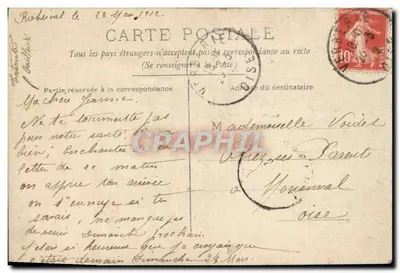 Rethéval le 23 Mars 1912.
CARTE POSTALE
Tous les pays étrangers n'acceptent pas de correspondance au recto
(Se renseigner à la Poste)
Partie réservée à la correspondance
Adresse du destinataire
Ma chère Jeanne
Ne te tourmente pas
pour notre santé,
bien; Enchantée de ta
lettre de ce matin
on espère ton arrivée
on s'ennuye si tu
savais, ne manque pas
de venir Dimanche prochain.
si heureuse que je croyais que
c'était demain Dimanche 24 Mars.
Mademoiselle
chez ses Parents
à Morienval
Oise
OISE
10